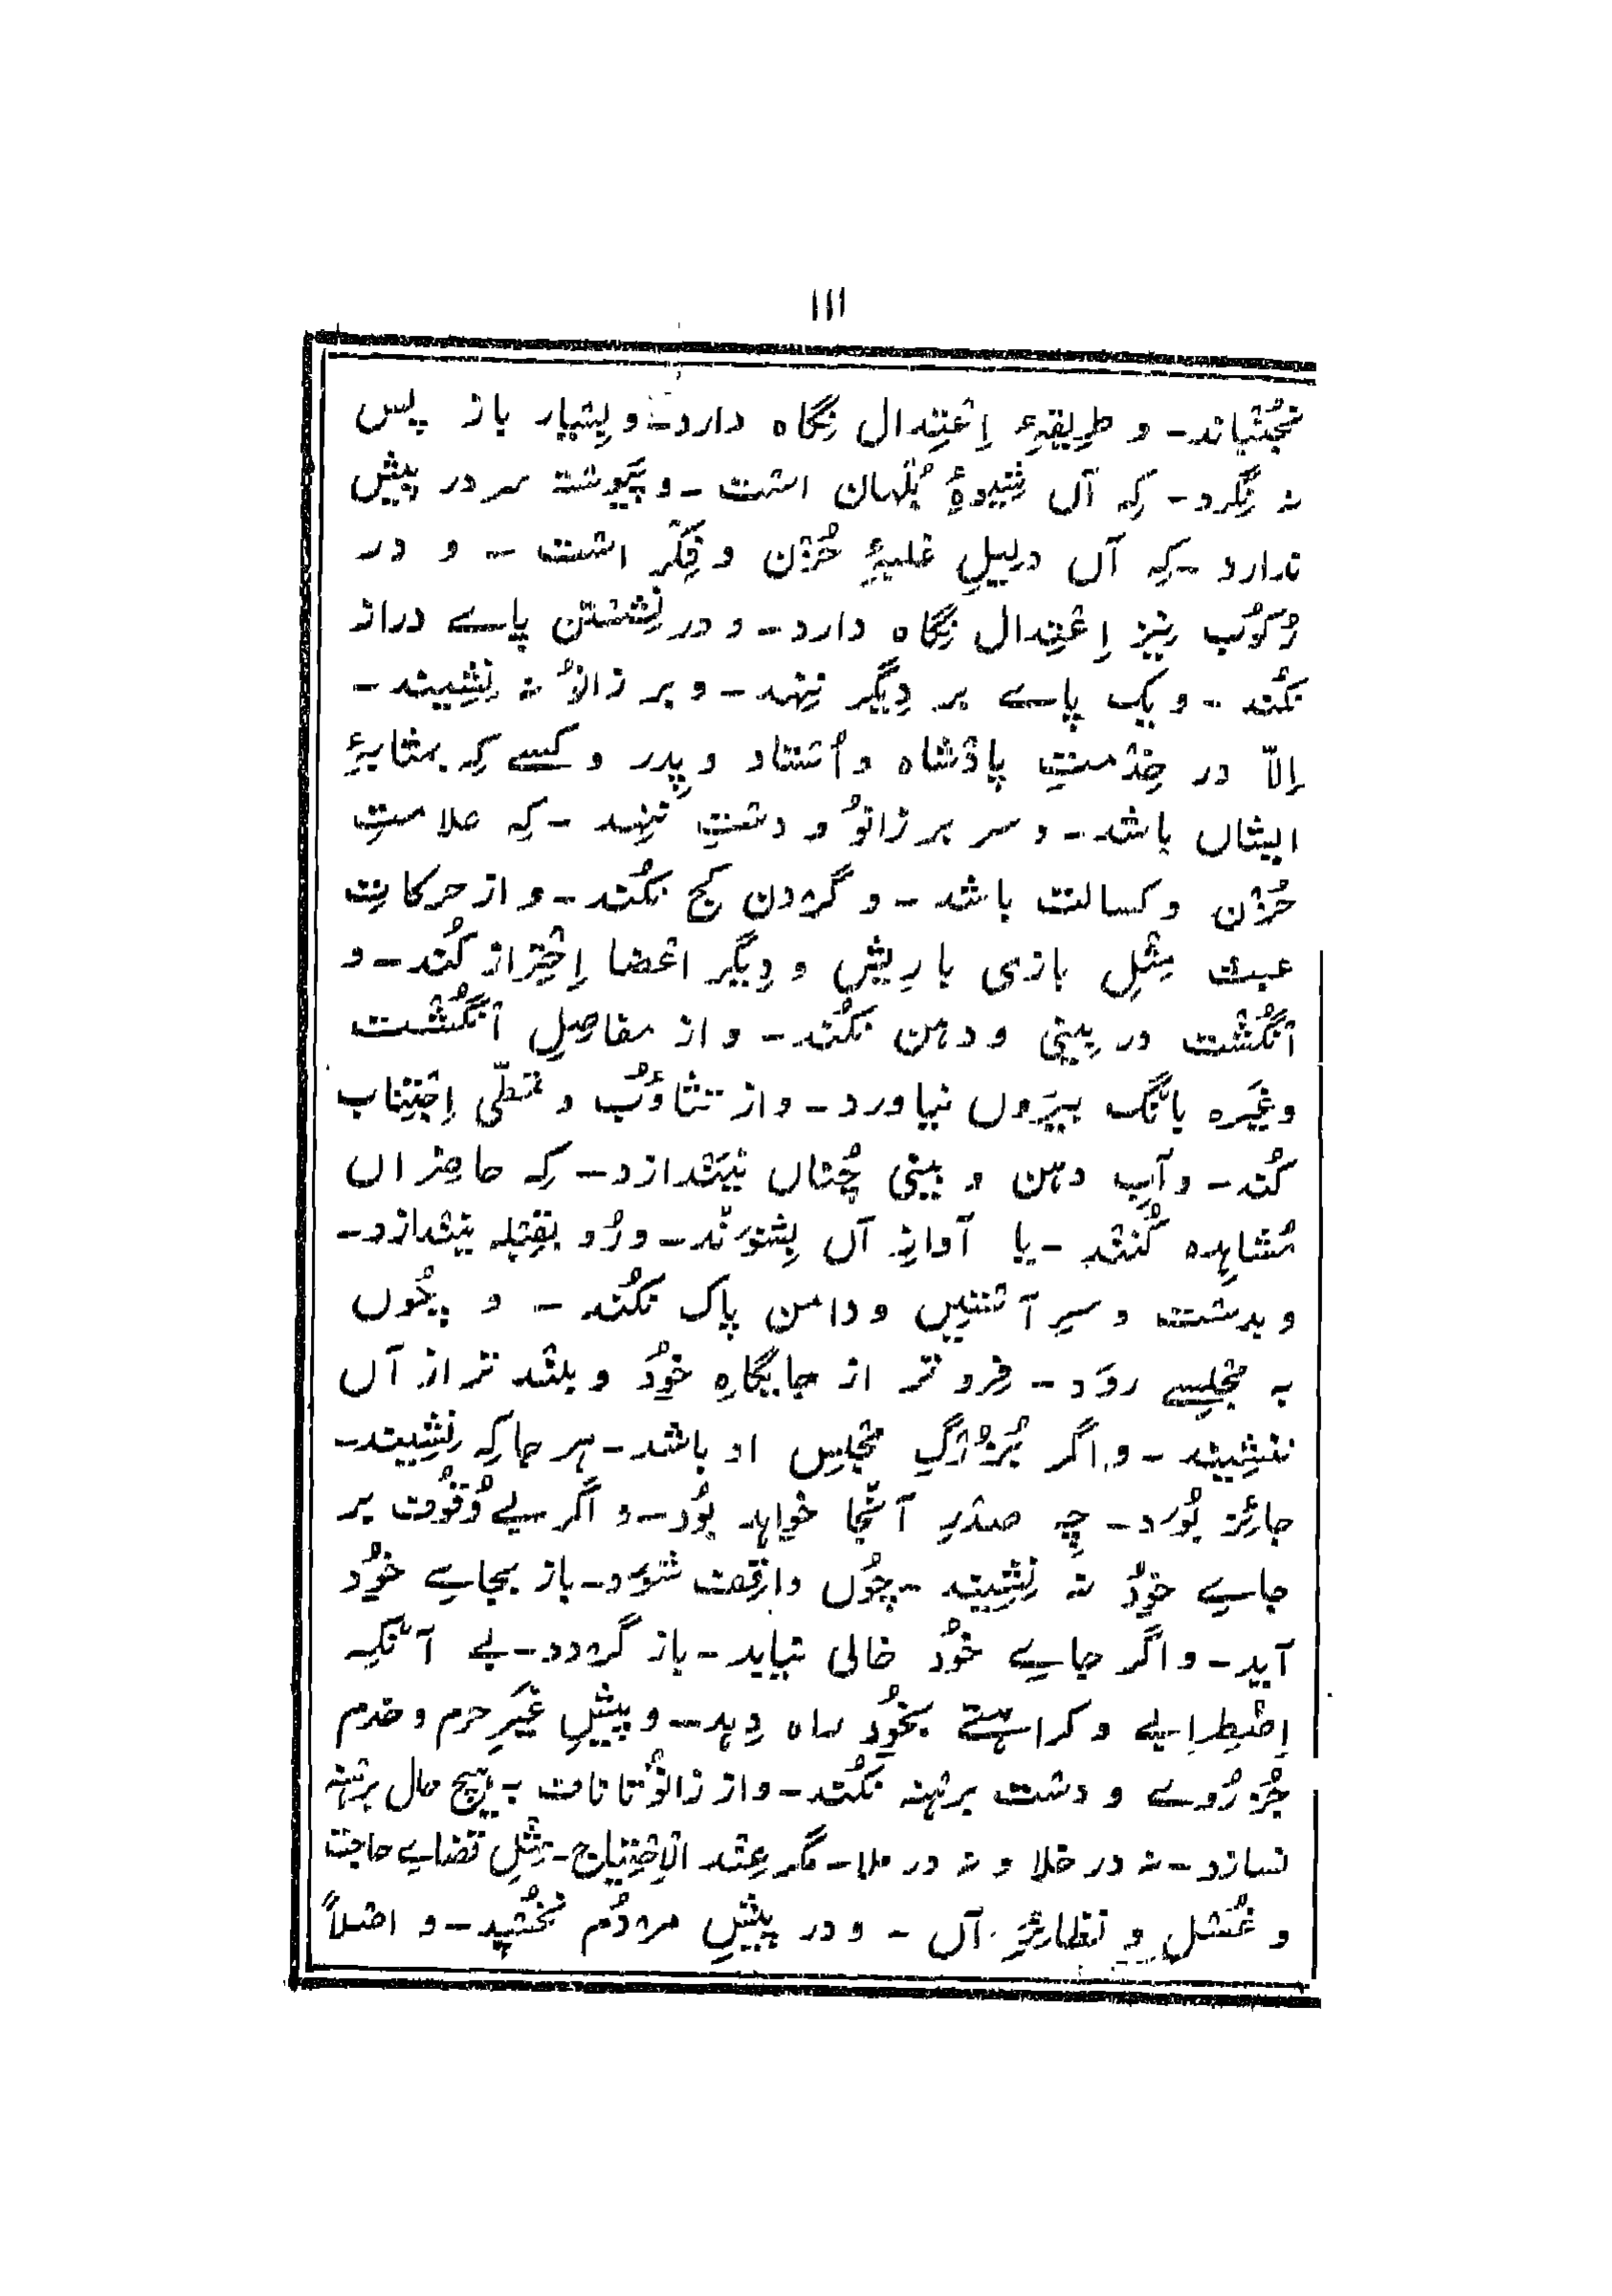 ۱۱۱
نجُنْباند۔ و طریقۂِ اِعْتِدال نِگاہ دارد۔ و بِسْیار باز پس
نہ نِگرد۔ کِہ آں شیوۂِ اُبْلہان اسْت۔ و پَیوسْتہ سر در پیش
ندارد۔ کِہ آں دلیلِ غلبۂِ حُزْن و فِکْر اسْت۔ و در
رُکُوب نیز اِعْتِدال نِگاہ دارد۔ و در نِشسْتن پاے دراز
نکُند۔ و یک پاے بر دِیگر نِنہد۔ و بر زانُو نہ نِشیند۔
اِلّا در خِدْمتِ پادْشاہ و اُسْتاد و پِدر و کسے کِہ بمثابۂِ
ایشاں باشد۔ و سر بر زانُو و دسْت نِنہد۔ کِہ علامتِ
حُزْن و کسالت باشد۔ و گرْدن کج نکُند۔ و از حرکاتِ
عبث مِثْلِ بازی با ریش و دِیگر اعْضا اِحْتِراز کُند۔ و
انْگُشْت در بینی و دہن نکُند۔ و از مفاصِلِ انْگُشْت
وغَیرہ بانْگ بیرُوں نیاورد۔ و از تثاوُب و تمطّی اِجْتِناب
کُند۔ و آبِ دہن و بینی چُناں نَینْدازد۔ کِہ حاضِراں
مُشاہِدہ کُنند۔ یا آوازِ آں بِشنَوند۔ و رُو بقِبْلہ نینْدازد۔
و بدسْت و سرِ آسْتیں و دامن پاک نکُند۔ و چُوں
بہ مجْلِسے روَد۔ فِروتر از جایگاہِ خُود و بلنْد تر از آں
ننشیند۔ و اگر بُزُرْگِ مجْلِس او باشد۔ ہر جا کِہ نِشیند۔
جائِز بُوَد۔ چِہ صدْر آنْجا خواہد بُود۔ و اگر بے وُقُوف بر
جاے خُود نہ نِشیند۔ چُوں واقِف شوَد۔ باز بجاے خُود
آید۔ و اگر جاے خُود خالی نیابد۔ باز گرْدد۔ بے آنْکِہ
اِضْطِرابے و کراہتے بخُود راہ دِہد۔ و پیشِ غَیرِ حرم و خدم
جُز رُوے و دسْت برہْنہ نکُند۔ و از زانُو تا ناف بہ ہیچ حال برہْنہ
نسازد۔ نہ در خلا و نہ در ملا۔ مگر عِنْد الاِحْتِیاج۔ مِثْلِ قضاے حاجت
و غُسْل و نظائرِ آں۔ و در پیشِ مرْدُم نخُسْپد۔ و اصْلاً